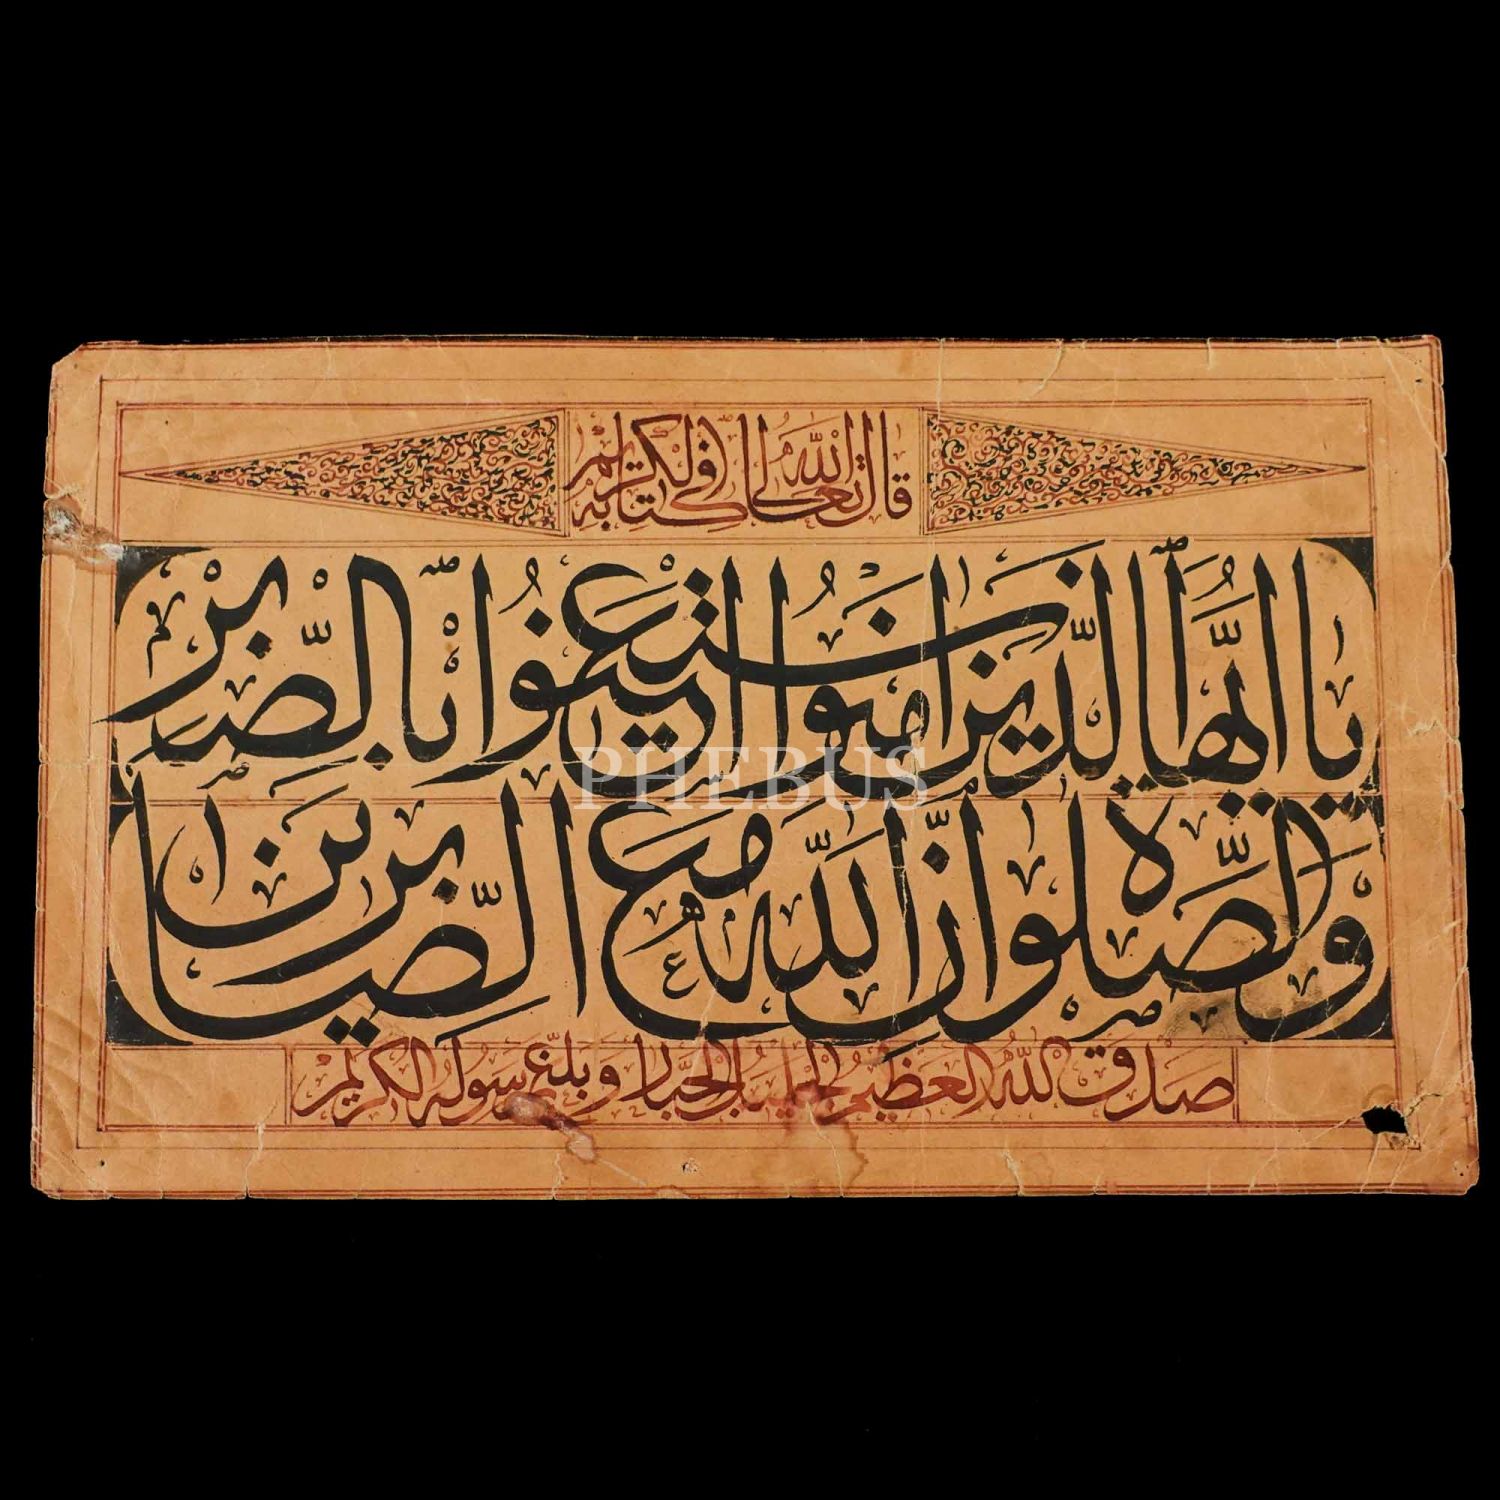 قال الله تعالى في كتابه الكريم
يا ايها الذين امنوا استعينوا بالصبر
والصلوة ان الله مع الصابرين
صدق الله العظيم الجليل الجبار وبلغ رسوله الكريم
PHEBUS